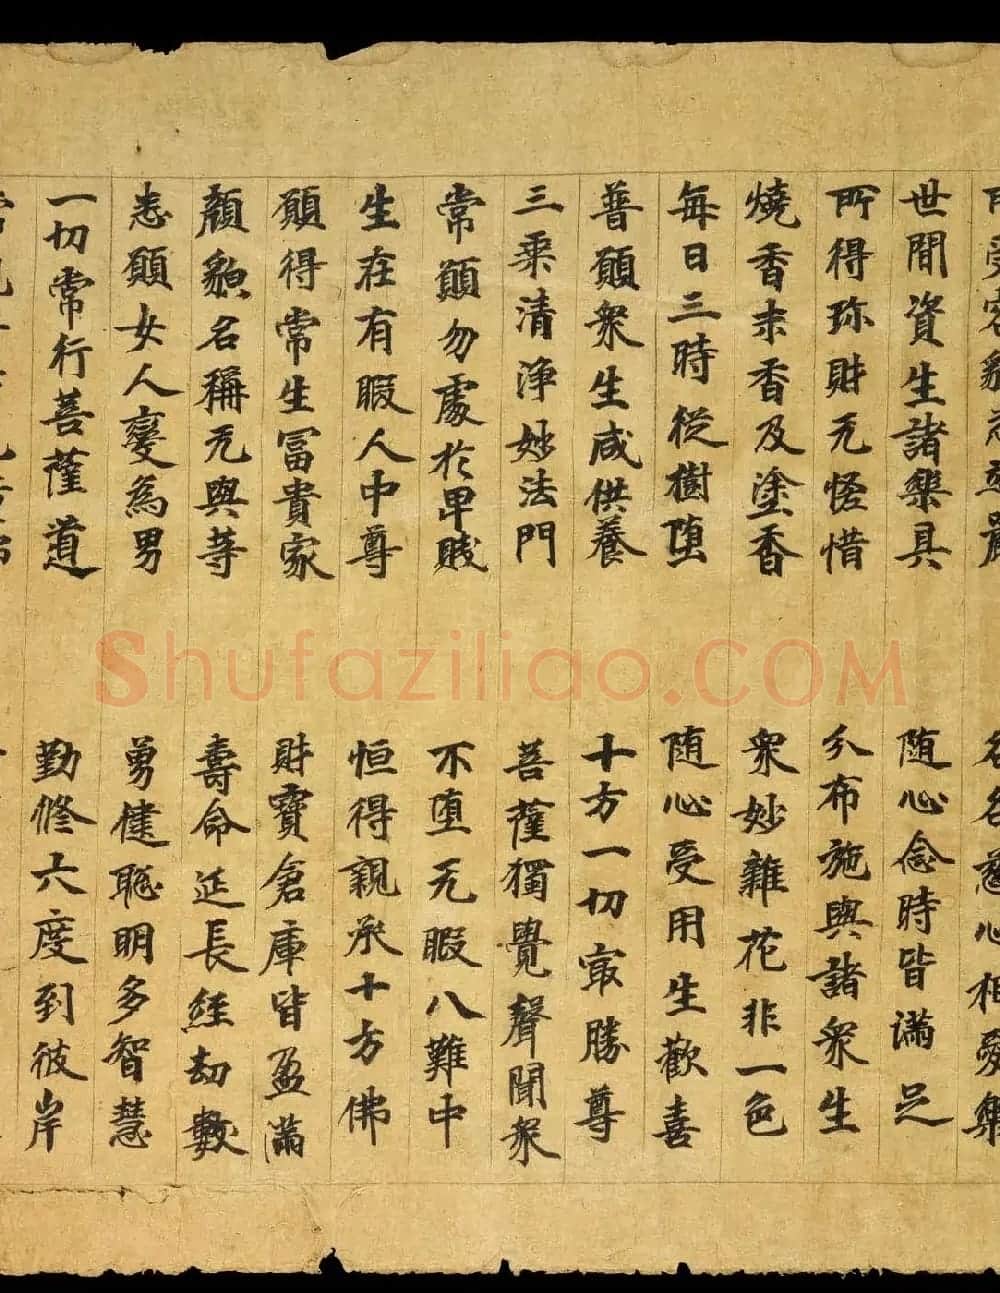 所受容貌悉端嚴 各各慈心相愛樂
世間資生諸樂具 随心念時皆滿足
所得珎財无悋惜 分布施與諸衆生
燒香末香及塗香 衆妙雜花非一色
每日三時從樹墮 随心受用生歡喜
普願衆生咸供養 十方一切冣勝尊
三乘清淨妙法門 菩薩獨覺聲聞衆
常願勿處於卑賤 不墮无暇八難中
生在有暇人中尊 恒得親承十方佛
願得常生富貴家 財寶倉庫皆盈滿
顏貌名稱无與等 壽命延長經劫數
悉願女人變為男 勇健聰明多智慧
一切常行菩薩道 勤修六度到彼岸
Shufaziliao.COM